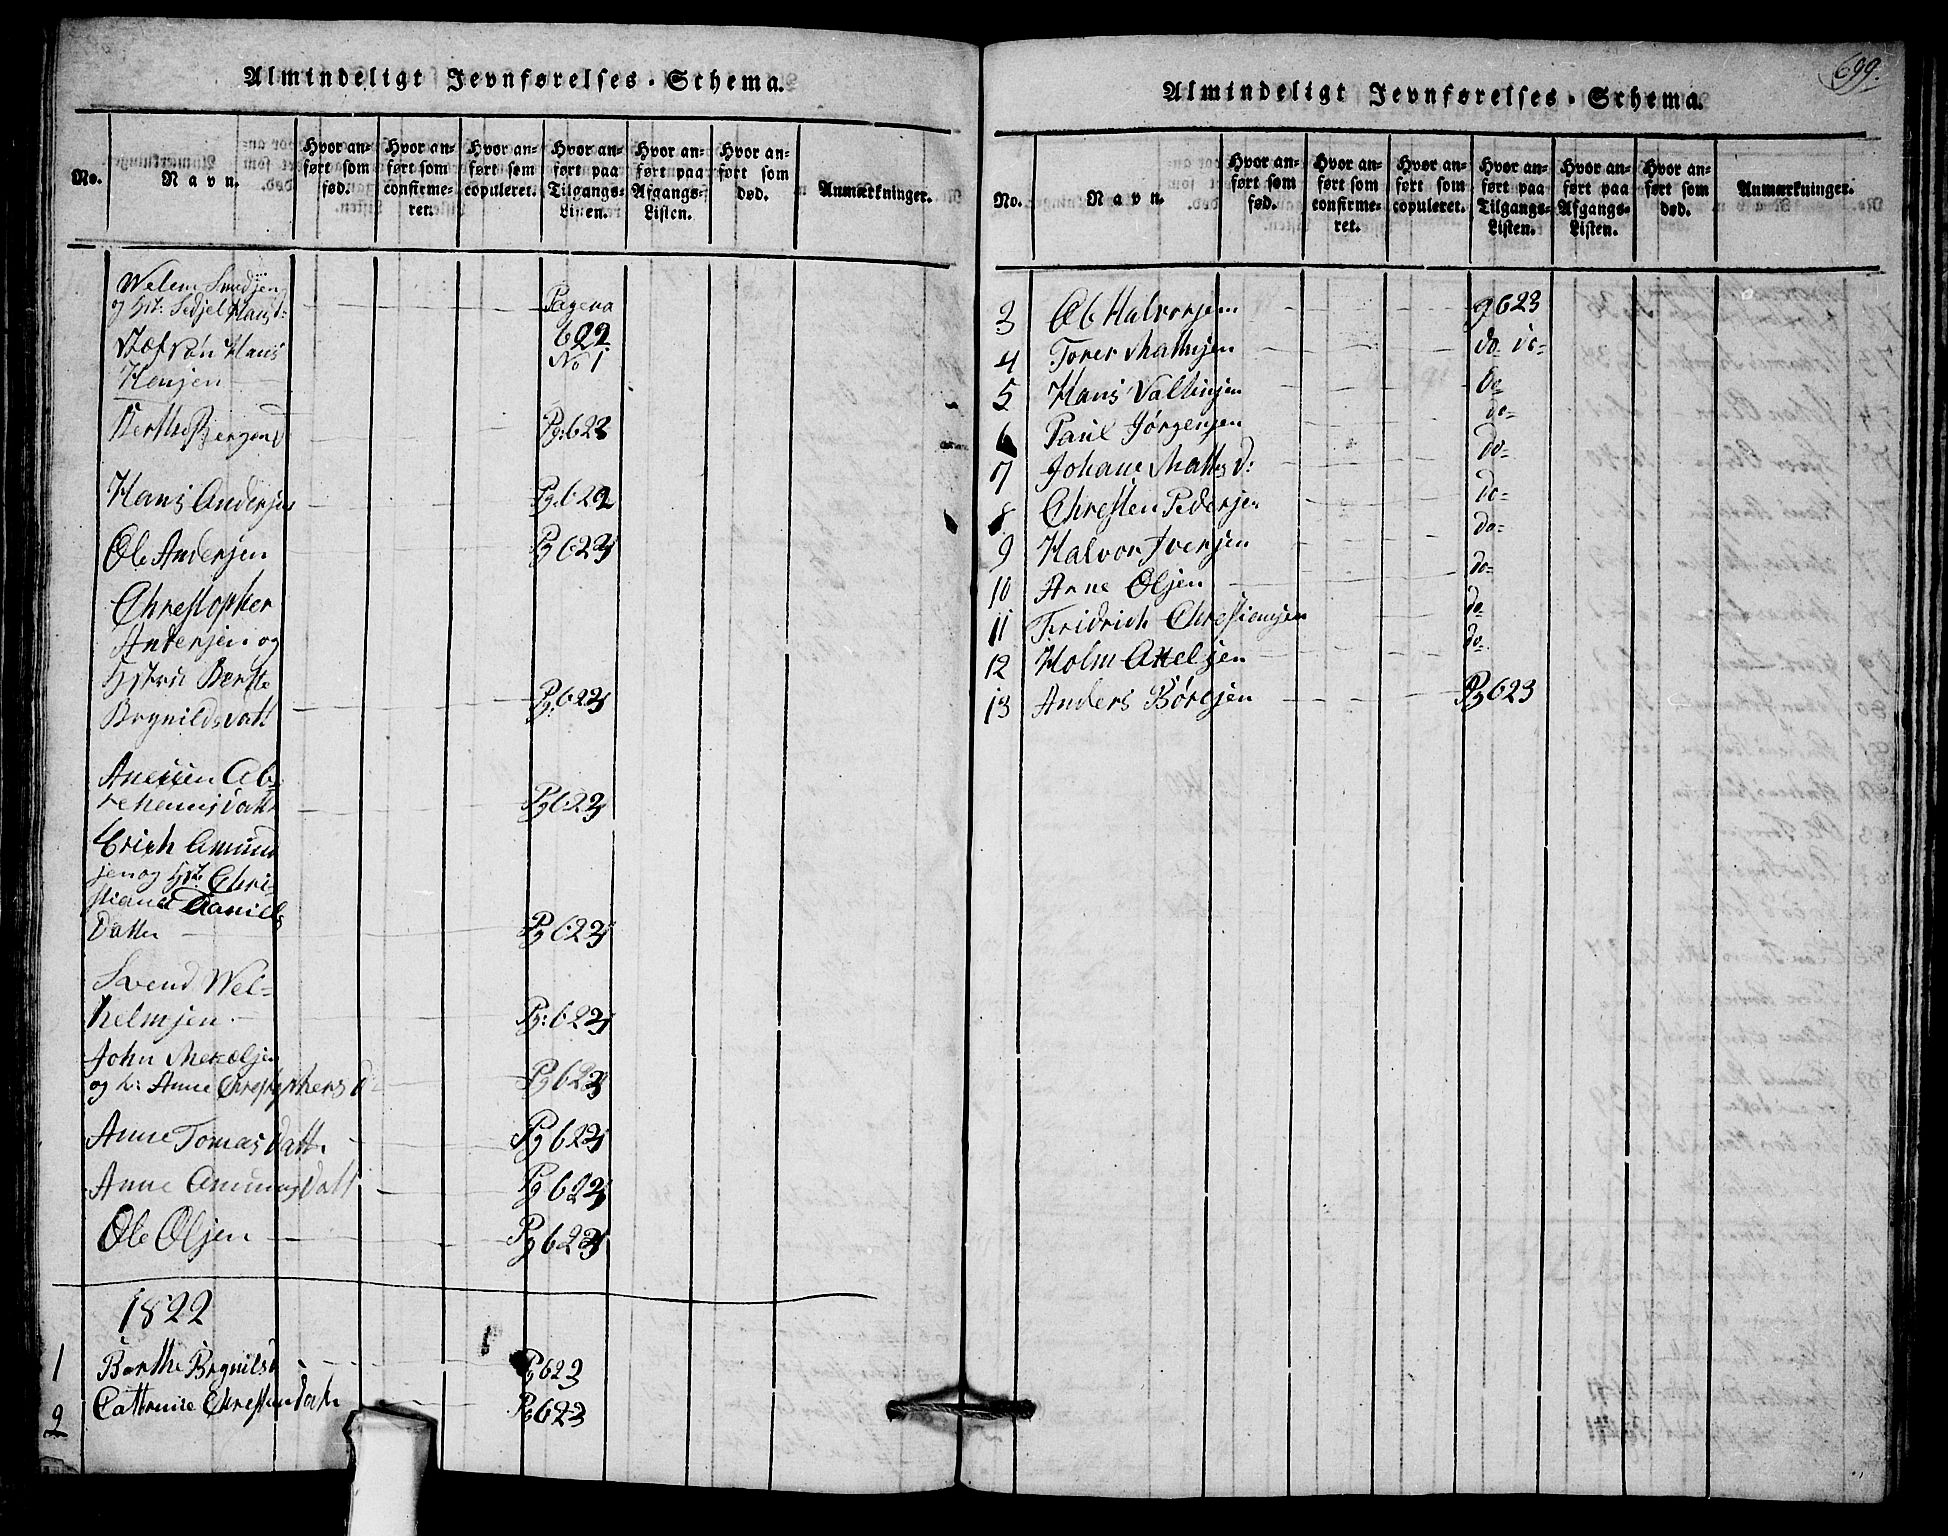 Almindeligt Jevnførelses-Schema.
No.
Navn.
Hvor anført som fød.
Hvor anført som confirmeret.
Hvor anført som copuleret.
Hvor anført paa Tilgangs-Listen.
Hvor anført paa Afgangs-Listen.
Hvor anført som død.
Anmærkninger.
Welem
og Hans d: Pagena
Hans 622
Hansen No 1
Berthe Pg: 623
Hans Andersen Pg 622
Ole Andersen Pg 623
Christopher
Andersen og
Hstru Berthe
Brynildsdatt Pg 623
Anesien Ab-
rehamsdatt Pg 623
Erich Amund
sen og Hst: Chri-
stiana Daniels
Datter Pg 623
Svend Wel-
helmsen Pg: 623
John
og h: Anne Christophers d Pg 623
Anne Tomasdatt Pg 623
Anne Amundsdatt Pg 623
Ole Olsen Pg 623
1822
1 Berthe Brynilsd Pg 623
2 Cathrine Christensdatt Pg 623
699.
Almindeligt Jevnførelses-Schema.
No.
Navn.
Hvor anført som fød.
Hvor anført som confirmeret.
Hvor anført som copuleret.
Hvor anført paa Tilgangs-Listen.
Hvor anført paa Afgangs-Listen.
Hvor anført som død.
Anmærkninger.
3 Ole Halvorsen 9623
4 Torer Mathisen do do
5 Hans do
6 Paul Jørgensen do
7 Johane Mathis d: do
8 Christen Pedersen do
9 Halvor Iversen do
10 Arne Olsen do
11 Fridrich Christiansen do
12 Holm Axelsen do
13 Anders Børesen Pg 623